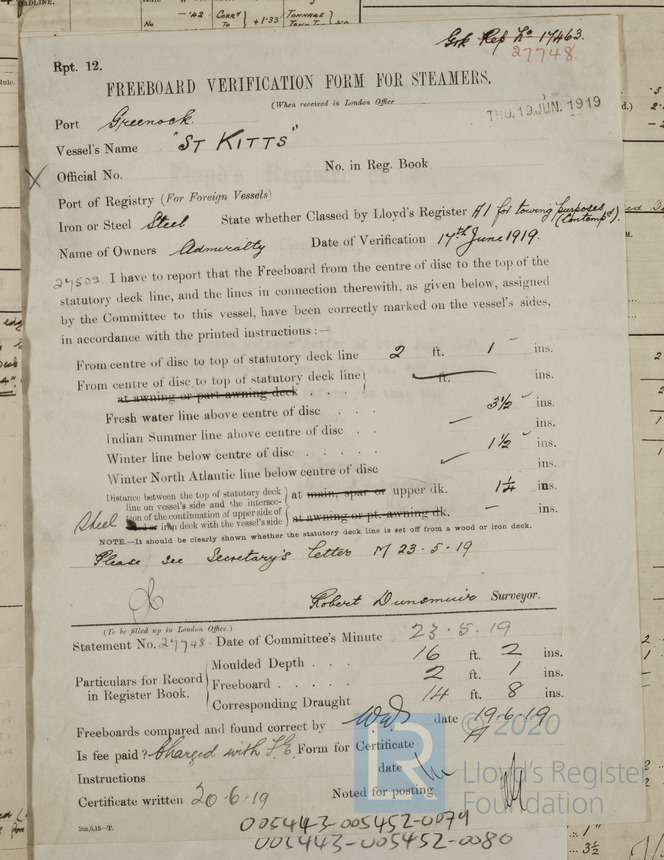 Grk Rep No 17463.
27748
Rpt. 12.
FREEBOARD VERIFICATION FORM FOR STEAMERS.
(When received in London Office
THU. 19 JUN. 1919
Port Greenock.
Vessel's Name "ST KITTS"
Official No. No. in Reg. Book
Port of Registry (For Foreign Vessels)
Iron or Steel Steel State whether Classed by Lloyd's Register A1 for towing purposes (Contempd).
Name of Owners Admiralty Date of Verification 17th June 1919.
27502 I have to report that the Freeboard from the centre of disc to the top of the
statutory deck line, and the lines in connection therewith, as given below, assigned
by the Committee to this vessel, have been correctly marked on the vessel's sides,
in accordance with the printed instructions :—
From centre of disc to top of statutory deck line 2 ft. 1 ins.
From centre of disc to top of statutory deck line ft. ins.
at awning or part awning deck
Fresh water line above centre of disc . . . 3½ ins.
Indian Summer line above centre of disc . . — ins.
Winter line below centre of disc . . . . . 1½ ins.
Winter North Atlantic line below centre of disc ins.
Distance between the top of statutory deck
line on vessel's side and the intersec- at main, spar or upper dk. 1¼ ins.
tion of the continuation of upper side of
Steel wood or iron deck with the vessel's side at awning or pt. awning dk. — ins.
NOTE.—It should be clearly shown whether the statutory deck line is set off from a wood or iron deck.
Please see Secretary's letter M 23.5.19
Robert Dunsmuir Surveyor.
(To be filled up in London Office.)
Statement No. 27748 Date of Committee's Minute 23.5.19
Particulars for Record in Register Book.
Moulded Depth . . . 16 ft. 2 ins.
Freeboard . . . . . 2 ft. 1 ins.
Corresponding Draught 14 ft. 8 ins.
Freeboards compared and found correct by date 19.6.19
Is fee paid? Charged with F.E. Form for Certificate
Instructions date
Certificate written 20.6.19 Noted for posting
005443-005452-0079
005443-005452-0080
© 2020
LR
Lloyd's Register
Foundation